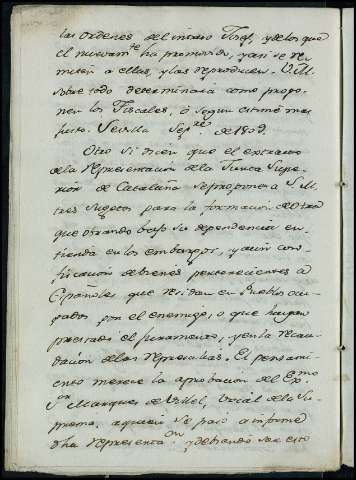 las ordenes del intruso Josef, y de los que
el nuevam.te ha promovido, y asi se re-
miten à ellas, y las reproducen. V.M.
sobre todo determinará como propo-
nen los Fiscales, ó segun estime mas
justo. Sevilla Sep.re de 1809.
Otro si dicen que el extracto
de la representacion de la Junta Supe-
rior de Cataluña se propone a S.M.
tres sugetos para la formacion de otra
que obrando baxo su dependencia en-
tienda en los embargos, y aun con-
fiscacion de bienes pertenecientes a
Españoles que residan en Pueblos ocu-
pados por el enemigo, o que hayan
prestado el juramento, y en la recau-
dacion de las represalias. El pensami-
ento merece la aprobacion del Ex.mo
S.or Marques de Villel, Vocal de la Su-
prema, a quien se pasó a informe
dha representa.on y debiendo ser esto